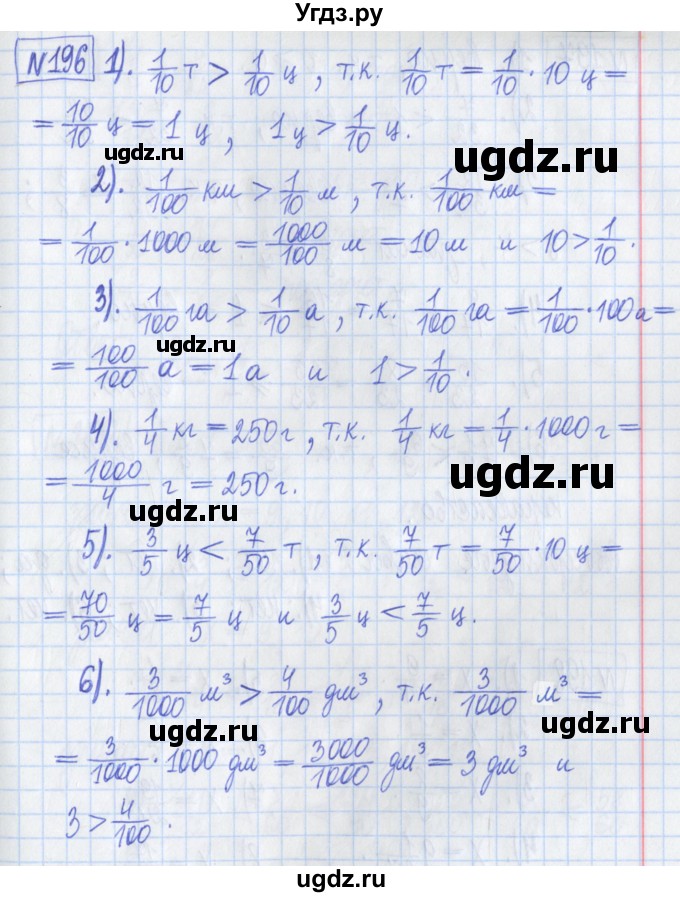 Угдз.ру
№196 1). 1/10 т > 1/10 ц, т.к. 1/10 т = 1/10 · 10 ц =
= 10/10 ц = 1 ц, 1ц > 1/10 ц.
ugdz.ru
ugdz.ru
2). 1/100 км > 1/10 м, т.к. 1/100 км =
= 1/100 · 1000 м = 1000/100 м = 10 м и 10 > 1/10.
ugdz.ru
3). 1/100 га > 1/10 а, т.к. 1/100 га = 1/100 · 100а =
ugdz.ru
= 100/100 а = 1а и 1 > 1/10.
4). 1/4 кг = 250 г, т.к. 1/4 кг = 1/4 · 1000 г =
ugdz.ru
= 1000/4 г = 250 г.
ugdz.ru
5). 3/5 ц < 7/50 т, т.к. 7/50 т = 7/50 · 10 ц =
= 70/50 ц = 7/5 ц и 3/5 ц < 7/5 ц.
ugdz.ru
6). 3/1000 м³ > 4/100 дм³, т.к. 3/1000 м³ =
ugdz.ru
ugdz.ru
= 3/1000 · 1000 дм³ = 3000/1000 дм³ = 3 дм³ и
3 > 4/100.
ugdz.ru
ugdz.ru